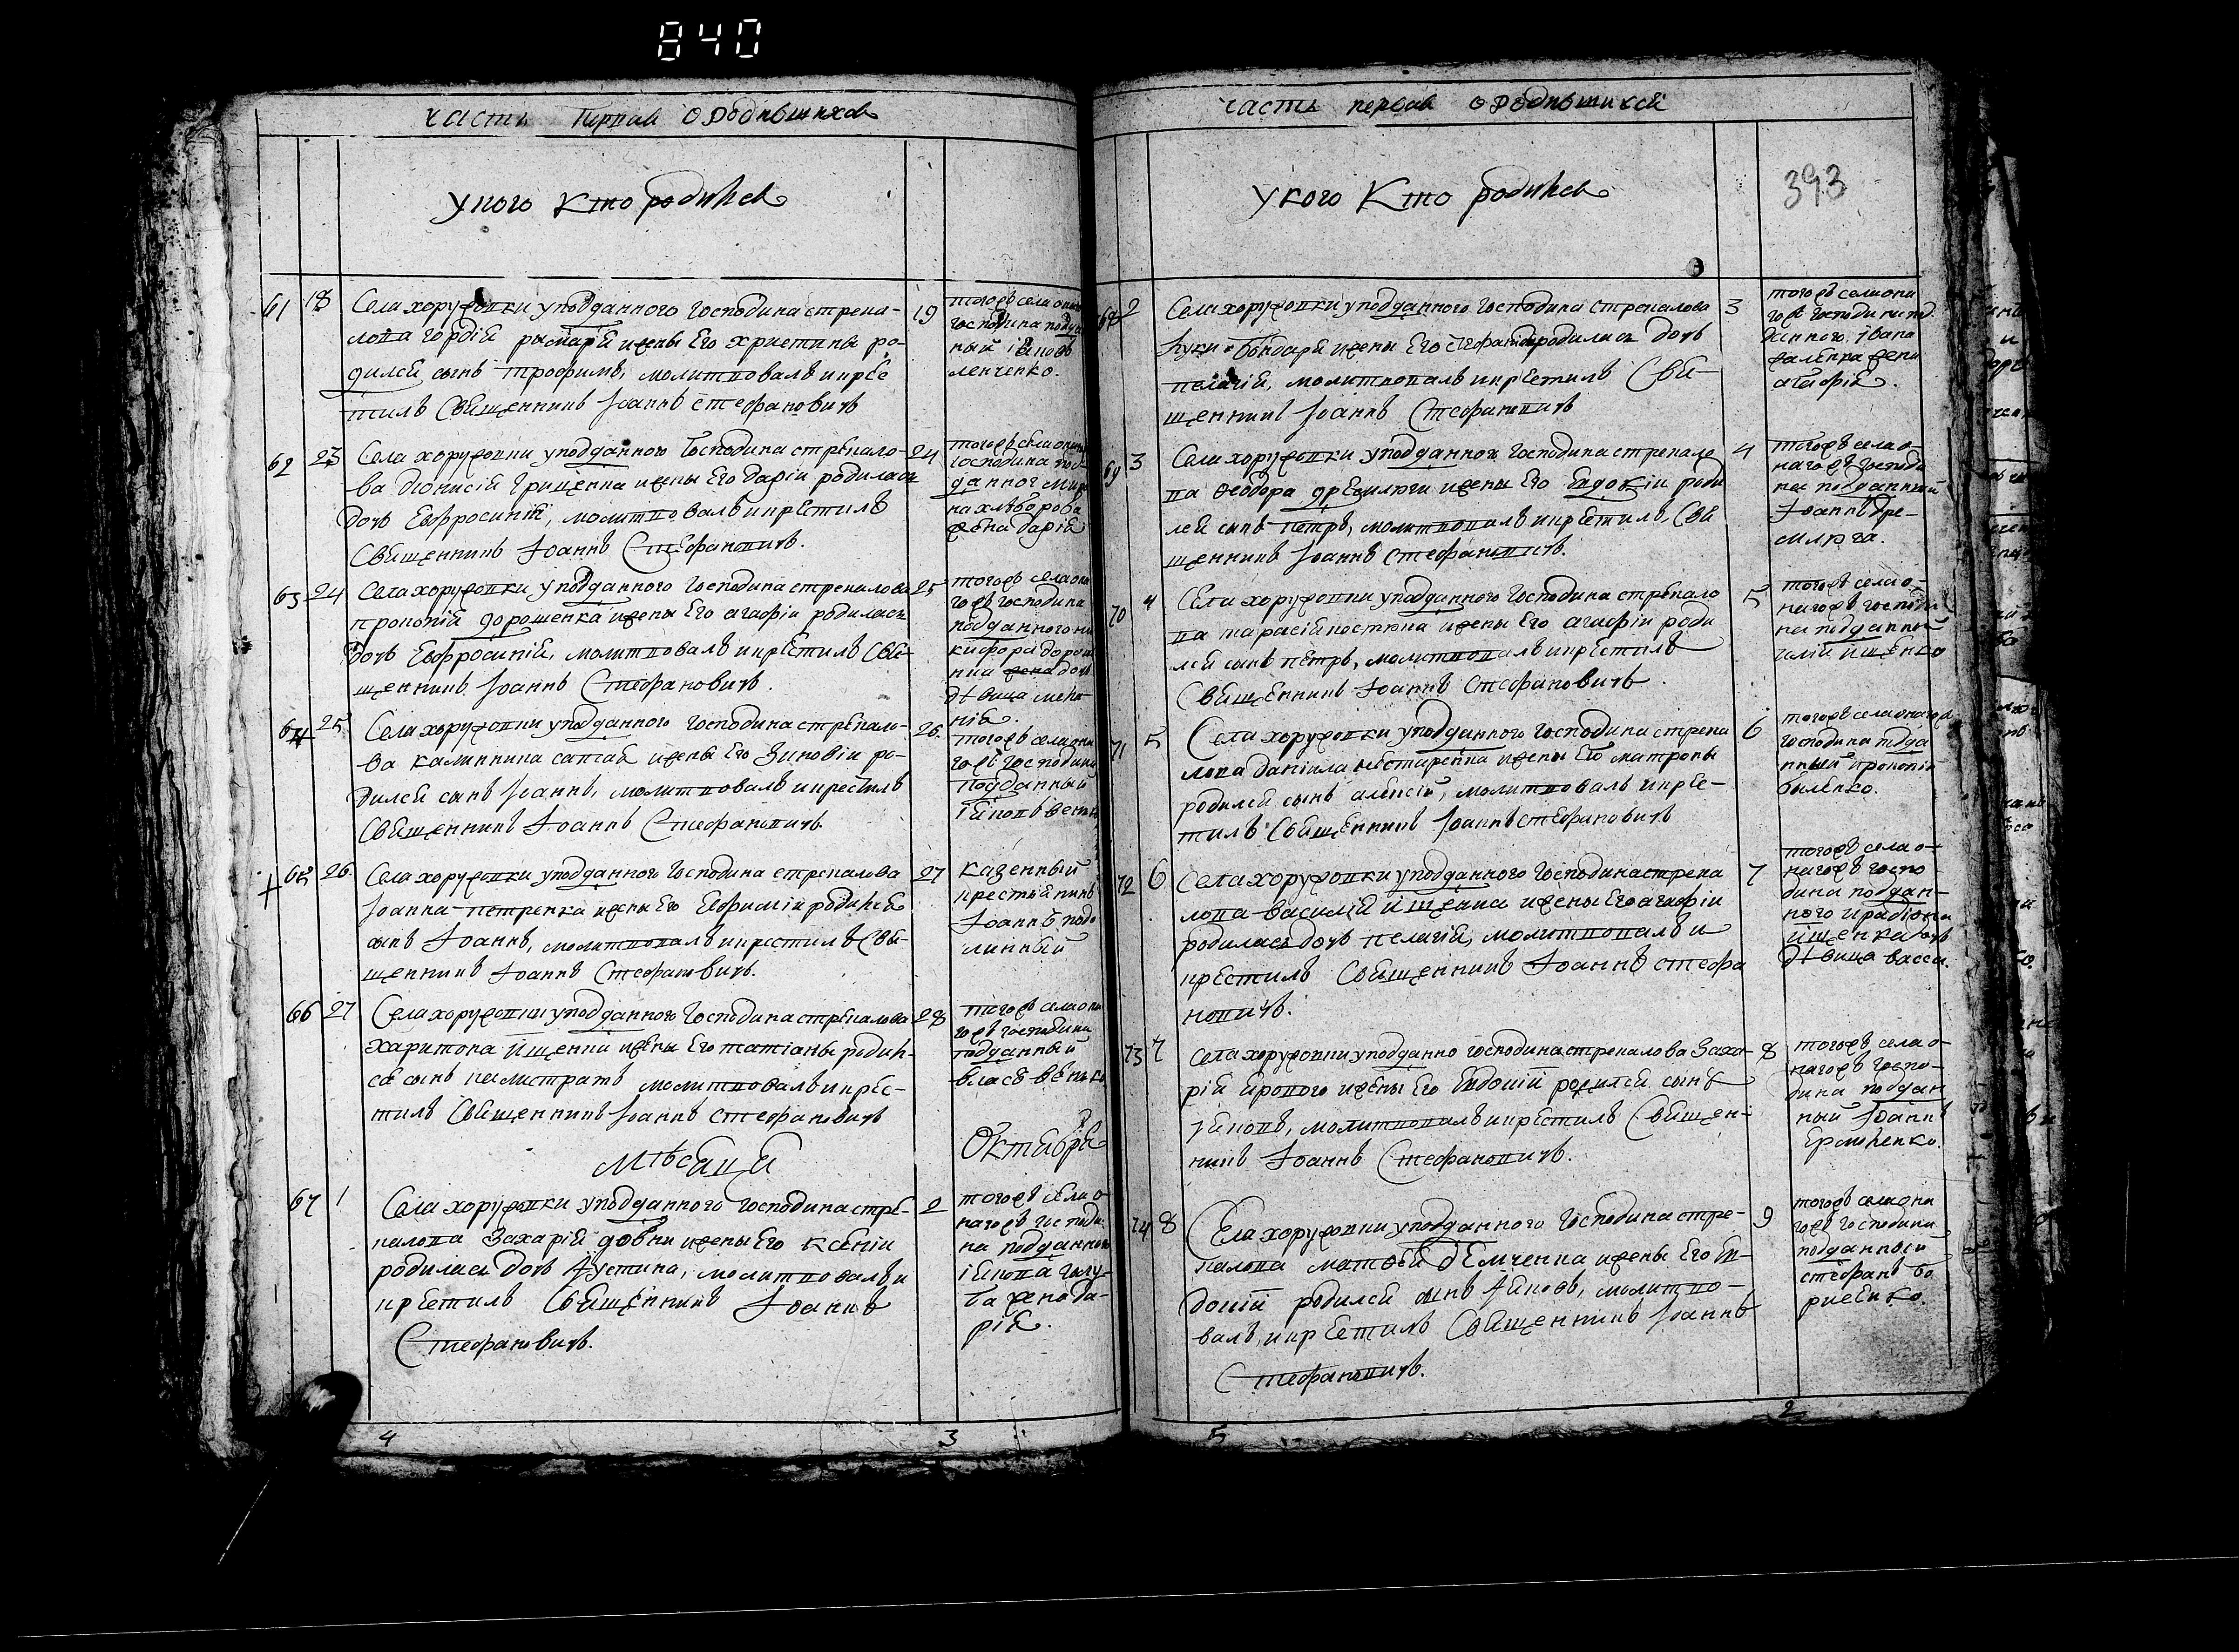 840
часть первая о родившихся
у кого кто родился
61 18 Села хоружовки у подданного господина стрека-
лова гордія рымаря жены его христины ро-
дился сынъ трофимъ, молитвовалъ и кре
стилъ священникъ Іоаннъ Стефановичъ
19 тогожъ села
господина
ленченко.
62 23 Села хоружовки у подданного господина стрекало-
ва діонисія грищенка жены его даріи родилась
дочь Евфросинія, молитвовалъ и крестилъ
священникъ Іоаннъ Стефановичъ.
24 тогожъ села
господина под
данног
на хлѣбороба
жена дарія
63 24 Села хоружовки у подданного господина стрекалова
прокопія дорошенка жены его агафіи родилась
дочь Евфросинія, молитвовалъ и крестилъ свя-
щенникъ Іоаннъ Стефановичъ.
25 тогожъ села она
гожъ господина
подданного ни
кифора дорош
нка жена дочь
дѣвица мела
нія.
64 25 Села хоружовки у подданного господина стрекало-
ва каллиника саптая жены его Зиновіи ро-
дился сынъ Іоаннъ, молитвовалъ и крестилъ
священникъ Іоаннъ Стефановичъ.
26. тогожъ села она
гожъ господина
подданный
іяковъ
65 26. Села хоружовки у подданного господина стрекалова
Іоанна петренка жены его Евфиміи родился
сынъ Іоаннъ, молитвовалъ и крестилъ свя-
щенникъ Іоаннъ Стефановичъ.
27 казенный
крестьянинъ
Іоаннъ
66 27 Села хоружовки у подданного господина стрекалова
харитона ищенка жены его татіаны родил-
ся сынъ калистратъ молитвовалъ и крес-
тилъ священникъ Іоаннъ Стефановичъ
28 тогожъ села она
гожъ господина
подданный
власъ
мѣсяца Октября
67 1 Села хоружовки у подданного господина стре-
калова Захарія довги жены его ксеніи
родилась дочь Іустина, молитвовалъ и
крестилъ священникъ Іоаннъ
Стефановичъ.
2 тогожъ села о-
нагожъ господи-
на подданного
іякова галу-
жена да-
рія.
4 3
часть первая о родившихся
393
у кого кто родился
68 2 Села хоружовки у подданного господина стрекалова
луки бондаря жены его родилась дочь
пелагія, молитвовалъ и крестилъ свя-
щенникъ Іоаннъ Стефановичъ
3 тогожъ села она
гожъ господина под
данного, ивана
жена
агафія.
69 3 Села хоружовки у подданного господина стрекало
ва ѳеодора дремлюги жены его евдокіи роди
лся сынъ петръ, молитвовалъ и крестилъ, свя
щенникъ Іоаннъ Стефановичъ.
4 тогожъ села о-
нагожъ господи
на подданный
Іоаннъ дре-
млюга.
70 4 Села хоружовки у подданного господина стрекало
ва тарасія костюка жены его агафіи роди
лся сынъ петръ, молитвовалъ и крестилъ
священникъ Іоаннъ Стефановичъ.
5 тогожъ села о-
нагожъ господи
на подданный
ищенко
71 5 Села хоружовки у подданного господина стрека
лова даніила нестеренка жены его матроны
родился сынъ алексій, молитвовалъ и кре-
стилъ священникъ Іоаннъ Стефановичъ
6 тогожъ села онагож
господина подда
нный прокопій
биленко.
72 6 Села хоружовки у подданного господина стрека
лова василія ищенка жены его агафіи
родилась дочь пелагія, молитвовалъ и
крестилъ священникъ Іоаннъ Стефа
новичъ.
7 тогожъ села о-
нагожъ госпо
дина поддан-
ного ирадіона
ищенка дочь
дѣвица васса.
73 7 Села хоружовки у подданно господина стрекалова Заха-
рія ярового жены его Евдокіи родился сынъ
Іяковъ, молитвовалъ и крестилъ священ-
никъ Іоаннъ Стефановичъ.
8 тогожъ села о-
нагожъ госпо-
дина поддан
ный Іоаннъ
Ермоленко.
74 8 Села хоружовки у подданного господина стре-
калова матфея демченка жены его Ев-
докіи родился сынъ Іяковъ, молитво-
валъ, и крестилъ священникъ Іоаннъ
Стефановичъ.
9 тогожъ села она
гожъ господина
подданный
стефанъ бо
рисенко.
5 2